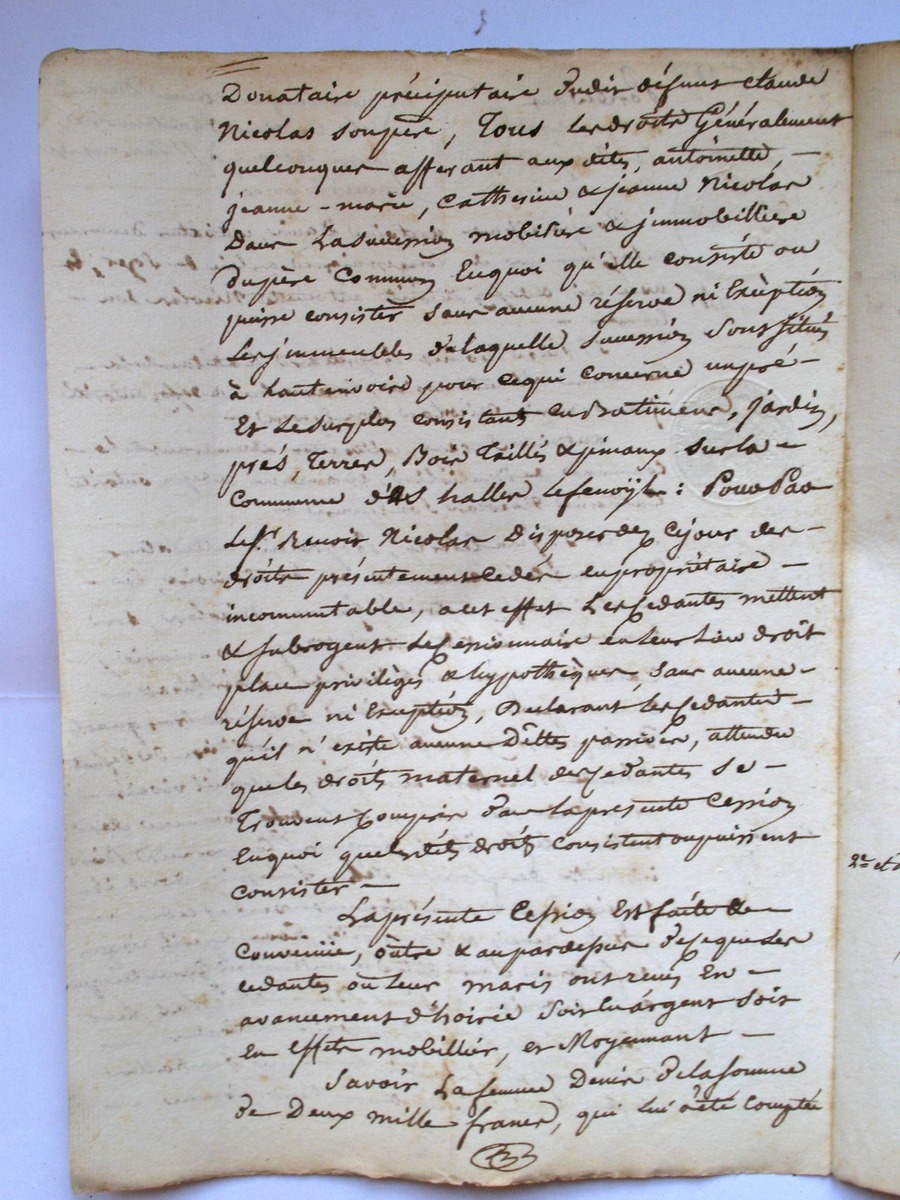 Donataire préciputaire dudit défunt Claude
Nicolas son père, Tous les droits Généralement
quelconques afferant aux dites, antoinette, –
jeanne-marie, Catherine & jeanne Nicolas
Dans La succession mobilière & jmmobillière
Du père Commun En quoi qu'elle consiste ou
puisse consister sans aucune réserve ni Exèption
Les jmmeubles de laquelle succession sont situés
à hautenvoire pour ce qui concerne un pré –
Et le surplus consistant en Batiments, jardin,
prés, Terres, Bois Taillés & pinaux sur la –
Commune d'S halles Lefenoÿl : Pour Par
Le Sr. Benoit Nicolas Disposer dez ce jour des –
droits présentement cedés en propriétaire –
incommutable, a cet effet Les Cedantes mettent
& subrogent Le Cessionnaire en leur Lieu droit
place privilèges & hypothèques, sans aucune –
réserve ni Exception, Declarant Les Cedantes –
qu'il n'existe aucune Dêttes passives, attendu
que les droits maternel des Cedantes se –
Trouvent Compris dans la présente Cession
En quoi que lesdits droits consistent ou puissent
consister –
La présente Cession Est faite &
Convenüe, outre & au par dessus de ce que Les
cedantes ou leur maris ont reçus En –
avancement d'hoirie soit en argent soit
En Effets mobilliés, et Moyennant –
Savoir La femme Denis de la somme
de Deux mille francs, qui lui a été Comptée
2e et d